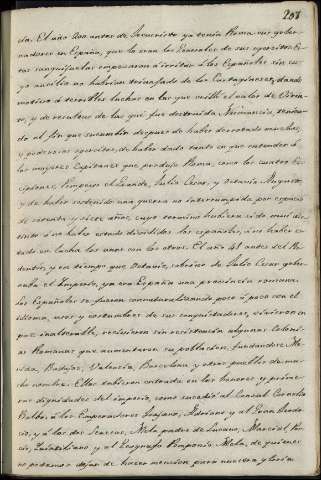 207
cia. El año 200 antes de Jesucristo ya tenia Roma sus gober-
nadores en España, que lo eran los Generales de sus egercitos. Es-
tas sanguijuelas empezaron á irritar á los Españoles sin cu-
yo auxilio no habrian triunfado de los Cartagineses, dando
motivo á terribles luchas en las que brilló el valor de Viria-
to, y de resultas de las que fué destruida Numancia, tenien-
do al fin que sucumbir despues de haber derrotado muchos,
y poderosos egercitos, de haber dado tanto en que entender á
los mejores Capitanes que produjo Roma, como los cuatro Es-
cipiones, Pompeyo el Grande, Julio Cesar, y Octavio Augusto
y de haber sostenido una guerra no interrumpida por espacio
de ciento y siete años, cuyo termino hubiera sido muy dis-
tinto si no haber estado divididos los españoles, si no haber es-
tado en lucha los unos con los otros. El año 41 antes del Re-
dentor, y en tiempo que Octavio, sobrino de Julio Cesar gober-
naba el Imperio, ya era España una provincia romana.
Los Españoles se fueron connaturalizando poco á poco con el
idioma, usos y costumbres de sus conquistadores, vivieron en
paz inalterable, recivieron sin resistencia algunas Colonias
Romanas que aumentaron su poblacion, fundandose Me-
rida, Badajoz, Valencia, Barcelona y otros pueblos de mu-
cho nombre. Ellos tubieron entrada en los honores y prime-
ras dignidades del imperio, como sucedió al Consul Cornelio
Balbo, á los Emperadores Trajano, Adriano y al Gran Teodo-
sio, y á los dos Senecas, Mela padre de Lucano, Marcial, Por-
cio, Quintiliano y al Geografo Pomponio Mela, de quienes
no podemos dejar de hacer mencion para nuestra gloria